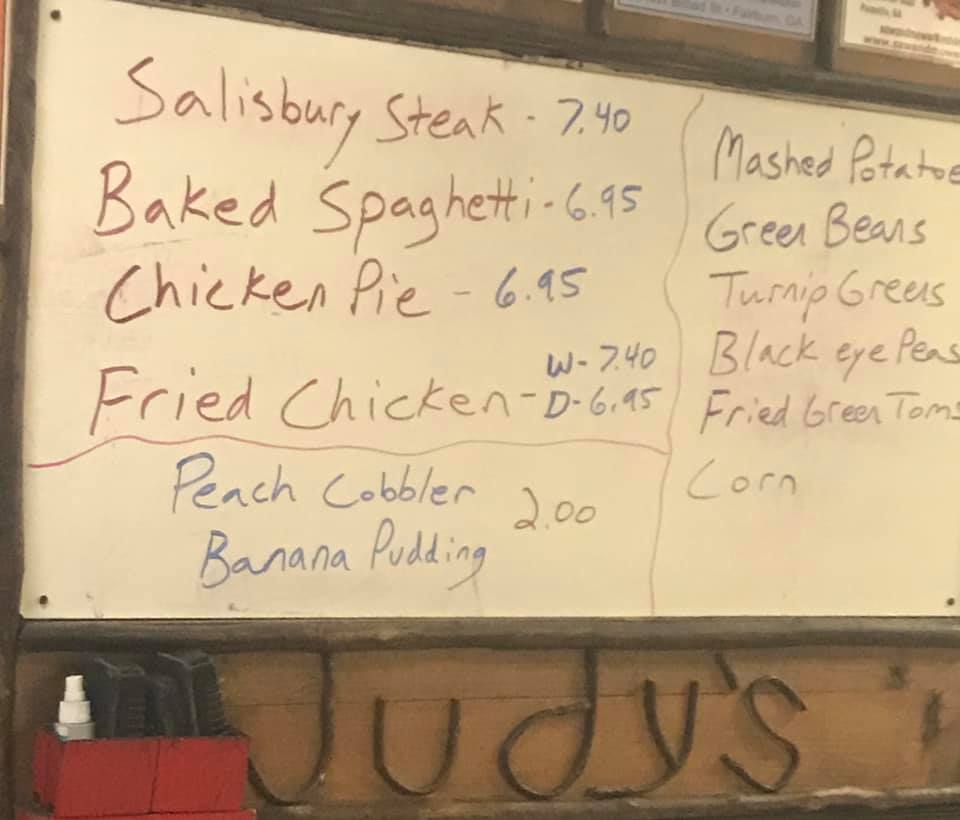 Salisbury Steak - 7.40
Baked Spaghetti - 6.95
Chicken Pie - 6.95
Fried Chicken - W- 7.40
D- 6.95
Peach Cobbler
2.00
Banana Pudding
Mashed Potatoe
Green Beans
Turnip Greens
Black eye Peas
Fried Green Toms
Corn
Judy's
Fairburn, GA